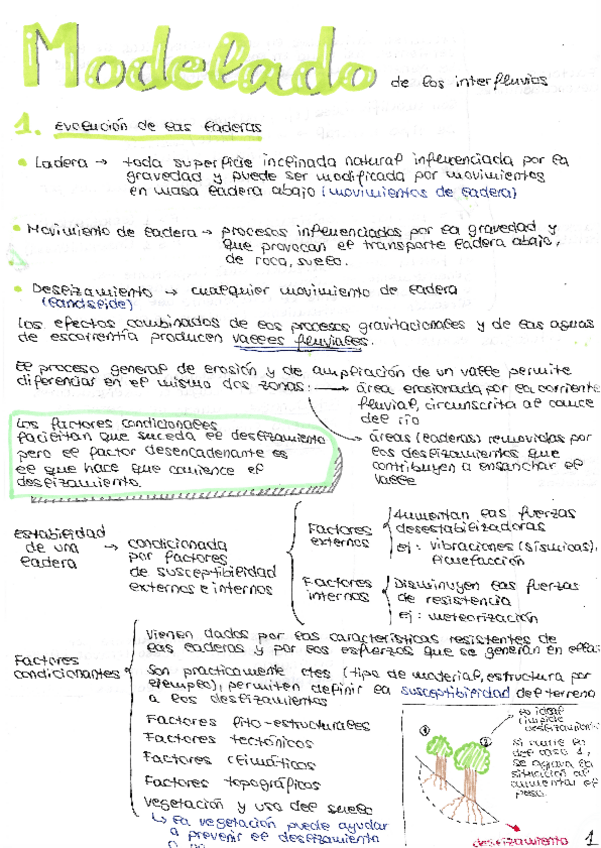 Modelado de los interfluvios
1. Evolución de las laderas
• Ladera → toda superficie inclinada natural influenciada por la
gravedad y puede ser modificada por movimientos
en masa ladera abajo (movimientos de ladera)
• Movimiento de ladera → procesos influenciados por la gravedad y
que provocan el transporte ladera abajo,
de roca, suelo.
• Deslizamiento → cualquier movimiento de ladera
(landslide)
Los efectos combinados de los procesos gravitacionales y de las aguas
de escorrentía producen valles fluviales.
El proceso general de erosión y de ampliación de un valle permite
diferenciar en el mismo dos zonas: → área erosionada por la corriente
fluvial, circunscrita al cauce
del río
→ áreas (laderas) removidas por
los deslizamientos que
contribuyen a ensanchar el
valle
Los factores condicionales
facilitan que suceda el deslizamiento
pero el factor desencadenante es
el que hace que comience el
deslizamiento.
Estabilidad
de una
ladera
→ condicionada
por factores
de susceptibilidad
externos e internos
Factores
externos
Aumentan las fuerzas
desestabilizadoras
ej: vibraciones (sísmicas),
licuefacción
Factores
internos
Disminuyen las fuerzas
de resistencia
ej: meteorización
Factores
condicionantes
Vienen dados por las características resistentes de
las laderas y por los esfuerzos que se generan en ellas
Son prácticamente ctes (tipo de material, estructura por
ejemplo), permiten definir la susceptibilidad del terreno
a los deslizamientos
Factores lito-estructurales
Factores tectónicos
Factores climáticos
Factores topográficos
Vegetación y uso del suelo
↳ La vegetación puede ayudar
a prevenir el deslizamiento
o no
①
②
lo ideal
(impide
deslizamiento)
Si
del caso 1,
se agrava la
situación al
aumentar el
peso.
deslizamiento
1